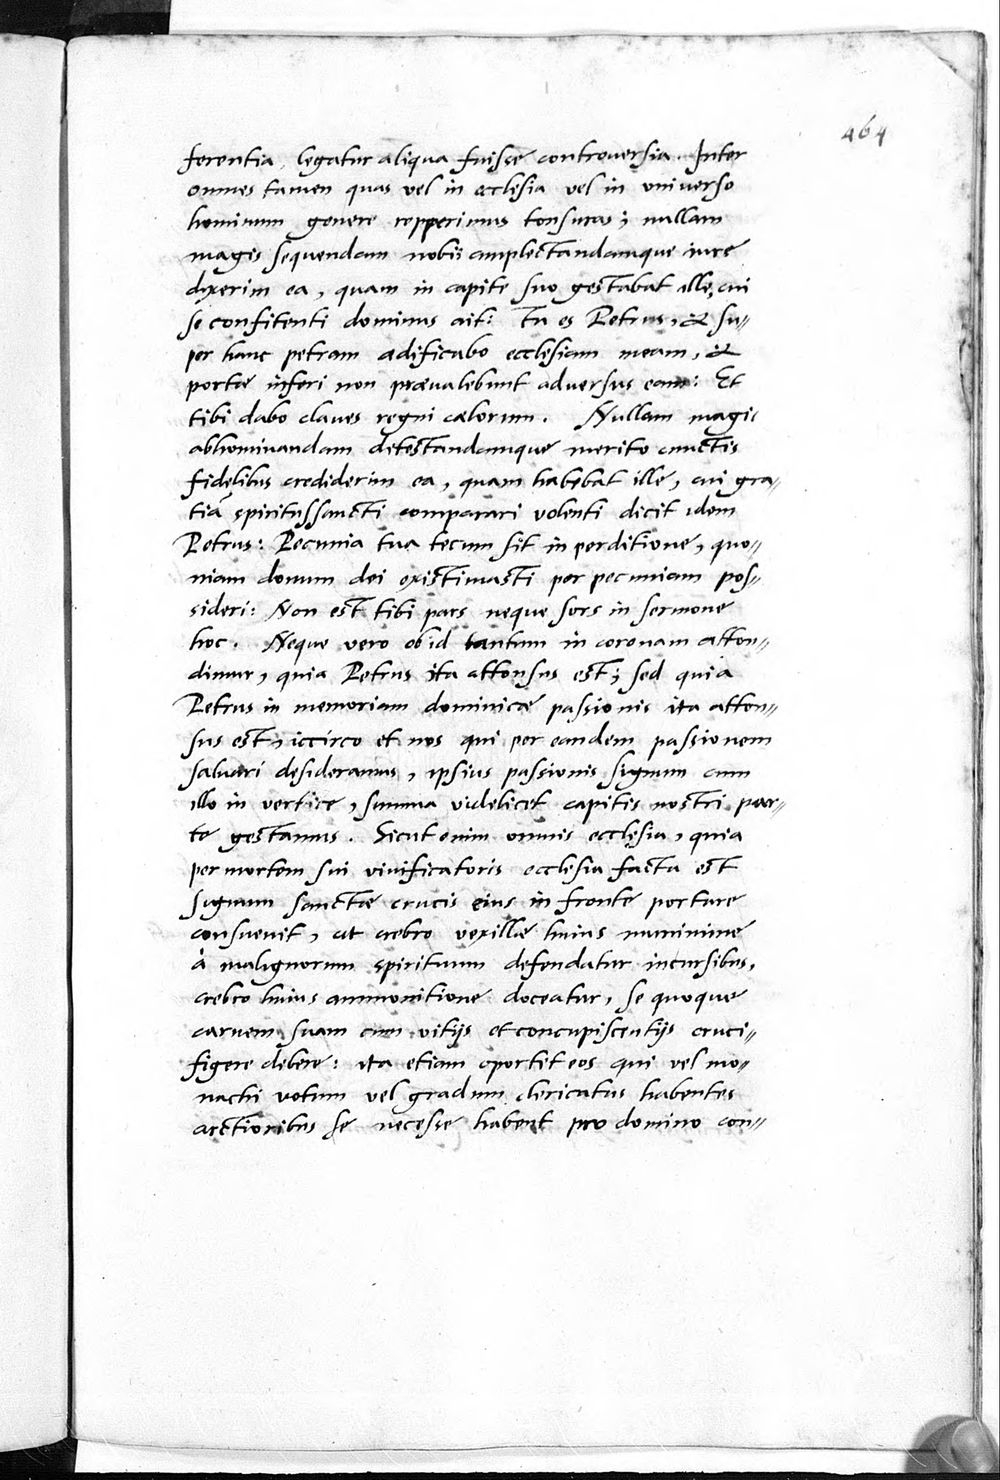 464
ferentia, legatur aliqua fuisse controversia. Inter
omnes tamen quas vel in ecclesia vel in universo
hominum genere repperimus tonsuras; nullam
magis sequendam nobis amplectandamque iure
dixerim ea, quam in capite suo gestabat ille, cui
se confitenti dominus ait: Tu es Petrus, & su=
per hanc petram ædificabo ecclesiam meam, &
portæ inferi non prævalebunt adversus eam: Et
tibi dabo claves regni cælorum. Nullam magis
abhominandam detestandamque merito cunctis
fidelibus crediderim ea, quam habebat ille, cui gra=
tiã spiritussancti comparari volenti dicit idem
Petrus: Pecunia tua tecum sit in perditione, quo=
niam donum dei existimasti per pecuniam pos=
sideri: Non est tibi pars neque sors in sermone
hoc. Neque vero ob id tantum in coronam atton=
dimur, quia Petrus ita attonsus est; sed quia
Petrus in memoriam dominicæ passionis ita atton=
sus est, iccirco et nos qui per eandem passionem
salvari desideramus, ipsius passionis signum cum
illo in vertice, summa videlicet capitis nostri par=
te gestamus. Sicut enim omnis ecclesia, quia
per mortem sui vivificatoris ecclesia facta est
signum sanctæ crucis eius in fronte portare
consuevit, ut crebro vexillæ huius munimine
à malignorum spirituum defendatur incursibus,
crebro huius ammonitione doceatur, se quoque
carnem suam cum vitijs et concupiscentijs cruci=
figere debere: ita etiam oportet eos qui vel mo=
nachi votum vel gradum clericatus habentes
arctioribus se necesse habent pro domino con=